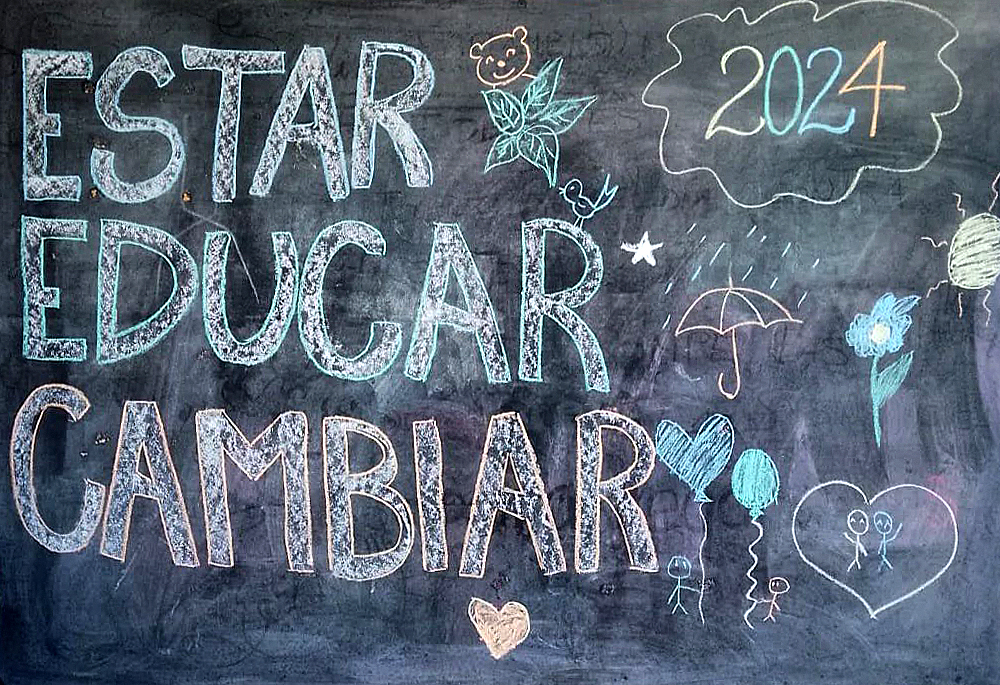 ESTAR
2024
EDUCAR
CAMBIAR